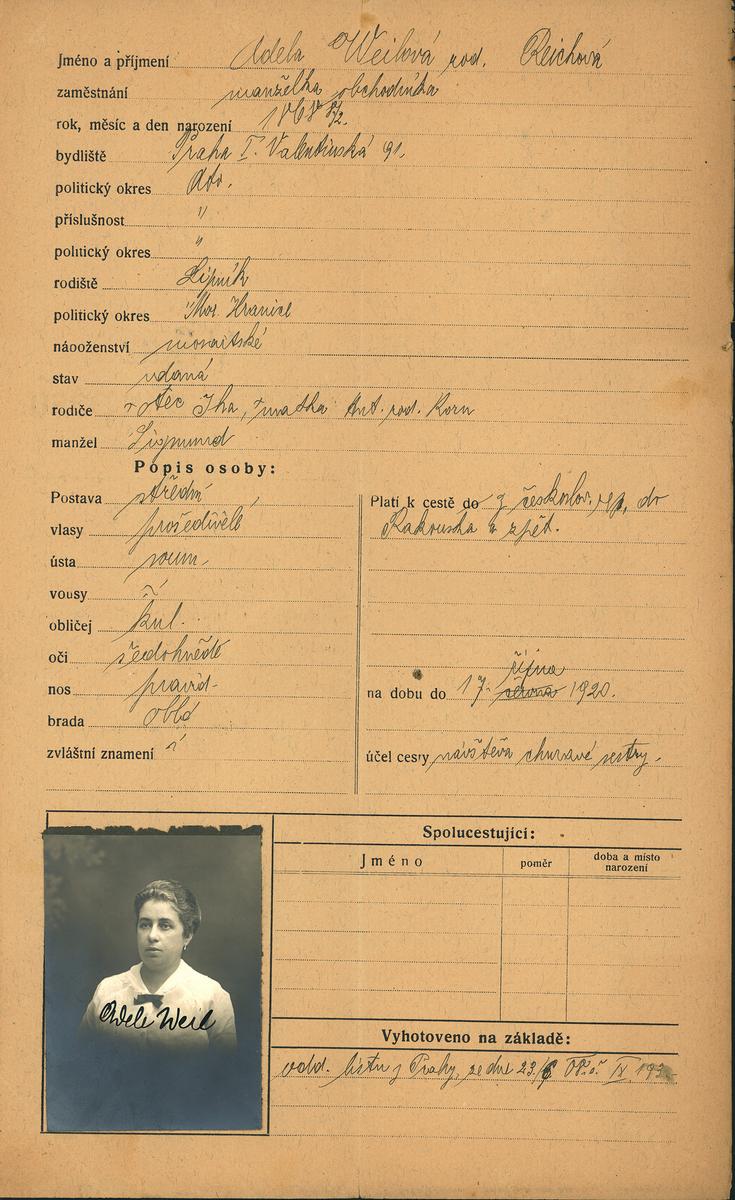 Jméno a příjmení Adela Weilová rod. Reichová
zaměstnání manželka obchodníka
rok, měsíc a den narození 1868 8/2.
bydliště Praha I. Valentinská 91.
politický okres dto.
příslušnost "
politický okres "
rodiště Lipník
politický okres Mor. Hranice
náboženství mosaitské
stav vdaná
rodiče otec Iha, matka Ant. rod. Korn
manžel Sigmund
Popis osoby:
Postava střední
vlasy prošedivělé
ústa soum.
vousy
obličej kul.
oči šedohnědé
nos pravid.
brada oblá
zvláštní znamení
Platí k cestě do z českoslov. rep. do
Rakouska a zpět.
října
na dobu do 17. 1920.
účel cesty návštěva churavé sestry.
Adele Weil
Spolucestující:
Jméno
poměr
doba a místo
narození
Vyhotoveno na základě:
listu z Prahy, ze dne 23/6 IX